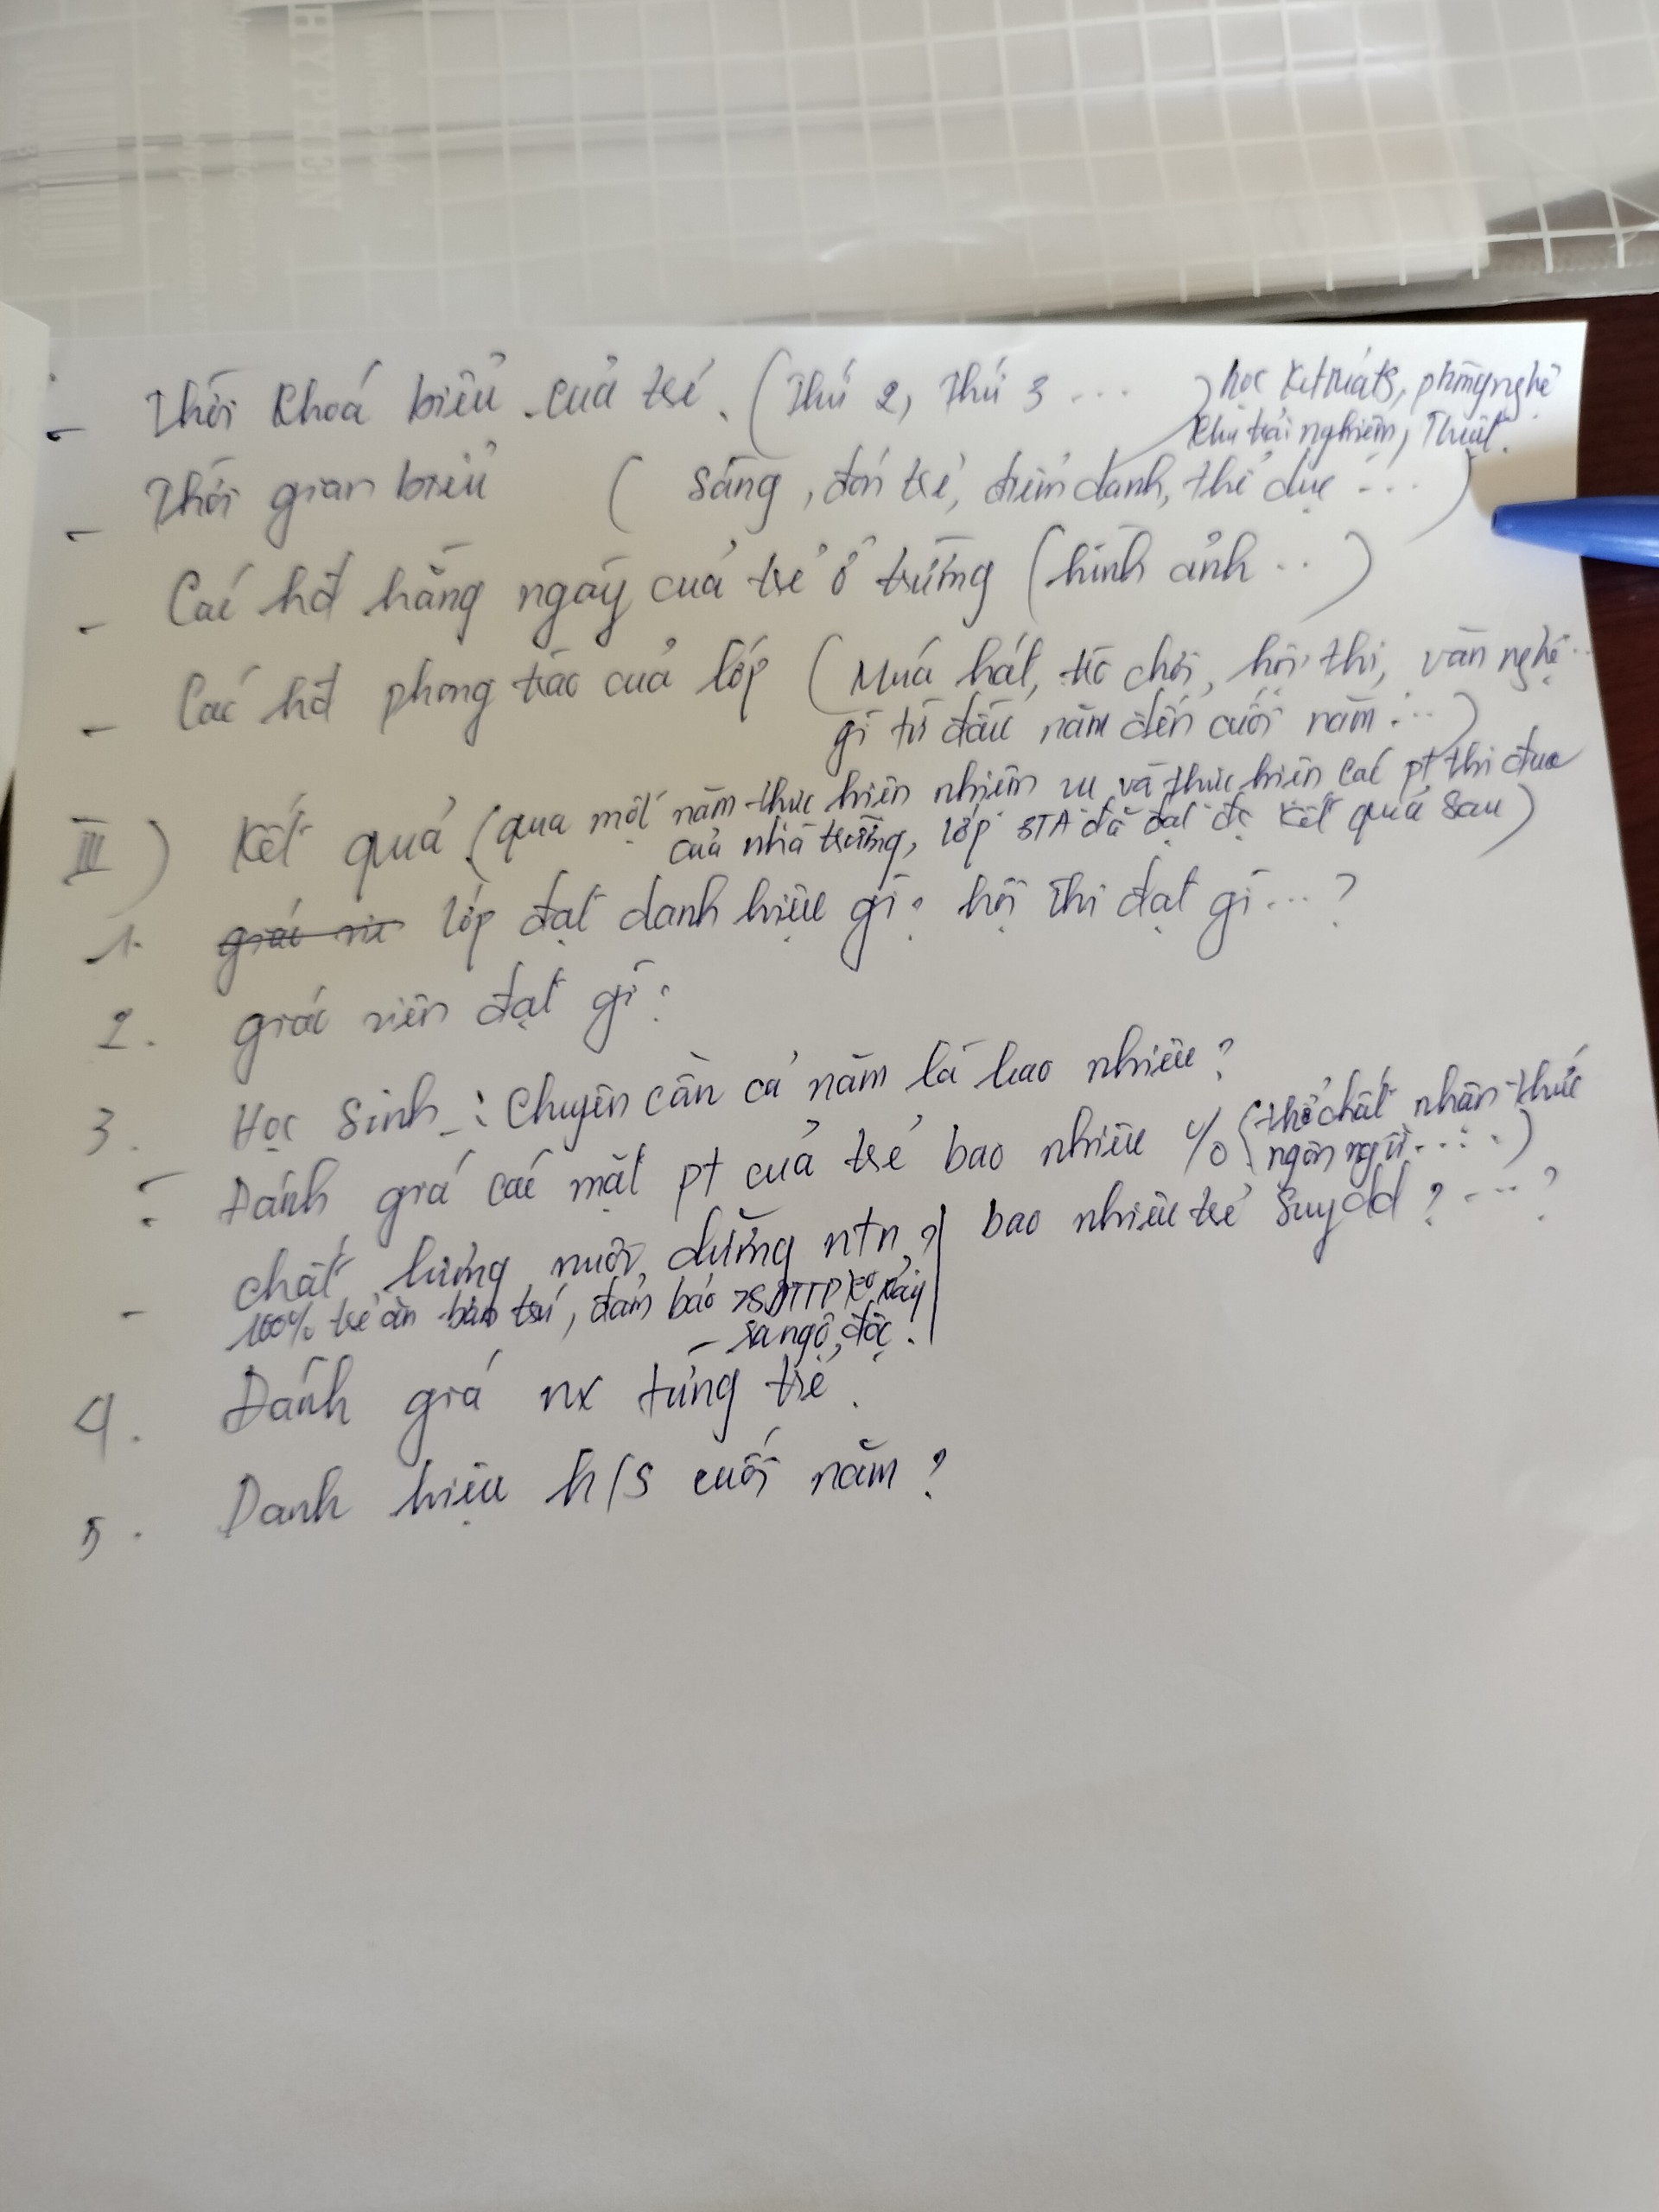 HYPPEN
- Thời khoá biểu của trẻ. (Thứ 2, Thứ 3 ... ) học Kitmats, phòng nghệ
khu trải nghiệm, Thuật.
- Thời gian biểu ( sáng, đón trẻ, điểm danh, thể dục ... )
- Các hđ hằng ngày của trẻ ở trường (hình ảnh .. )
- Các hđ phong trào của lớp (Múa hát, trò chơi, hội thi, văn nghệ ..
gì từ đầu năm đến cuối năm ...)
III) Kết quả (qua một năm thực hiện nhiệm vụ và thực hiện các pt thi đua
của nhà trường, lớp 5TA đã đạt đc kết quả sau)
1. giáo vi lớp đạt danh hiệu gì? hội thi đạt gì ... ?
2. giáo viên đạt gì?
3. Học sinh : Chuyên cần cả năm là bao nhiêu?
- Đánh giá các mặt pt của trẻ bao nhiêu % (thể chất nhận thức
ngôn ngữ .... )
- chất lượng nuôi dưỡng ntn? bao nhiêu trẻ suy dd ? ... ?
100% trẻ ăn bán trú, đảm bảo VSATTP ko xảy
ra ngộ độc.
4. Đánh giá nx từng trẻ.
5. Danh hiệu h/s cuối năm ?